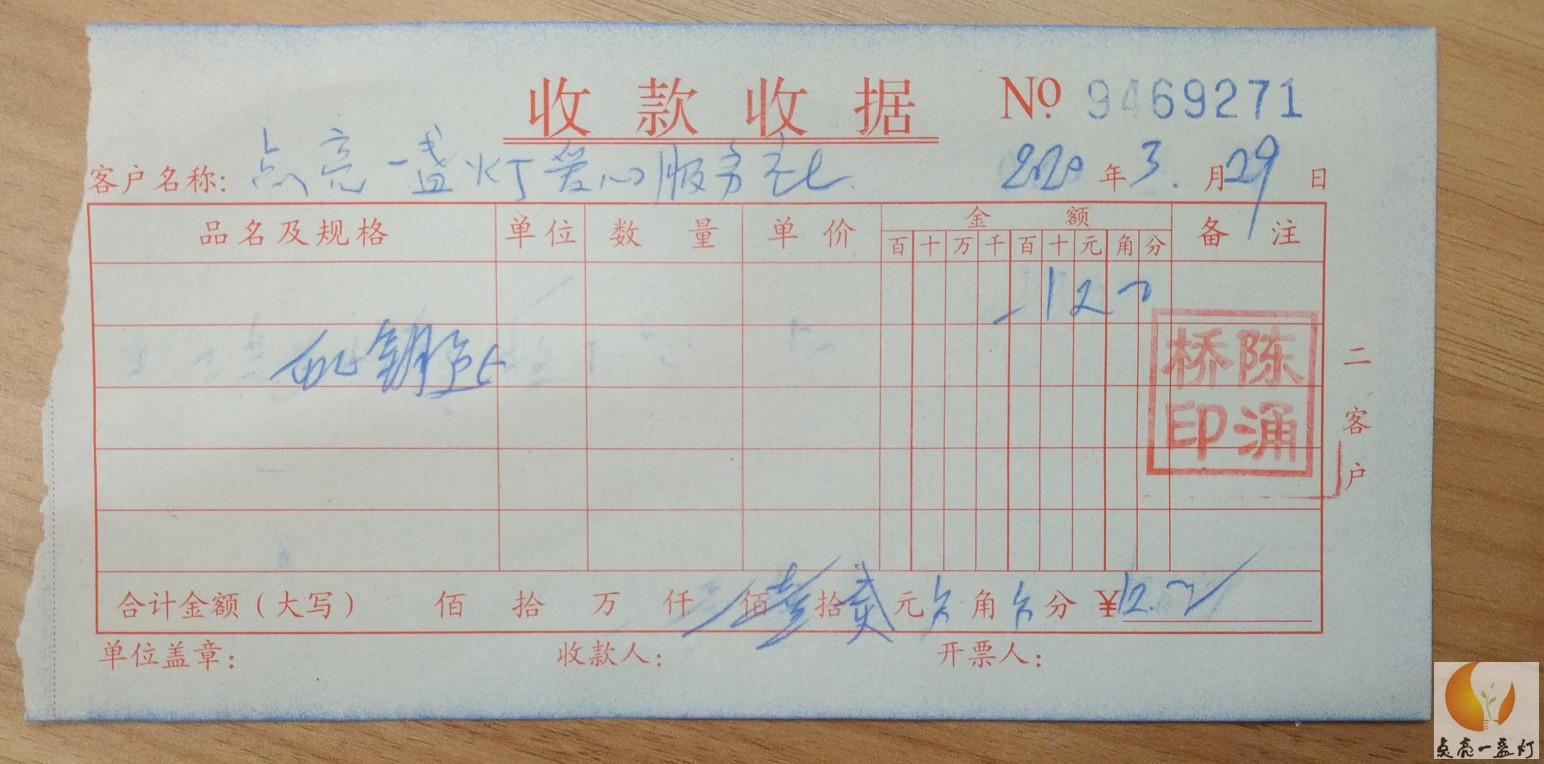 收款收据 № 9469271
客户名称: 点亮一盏灯爱心服务社 2020年3月29日
品名及规格 单位 数量 单价 金额 备注
百十万千百十元角分
12
配钥匙
陈桥涌印
二客户
合计金额(大写) 佰拾万仟佰壹拾贰元 角 分 ¥12.
单位盖章: 收款人: 开票人:
点亮一盏灯